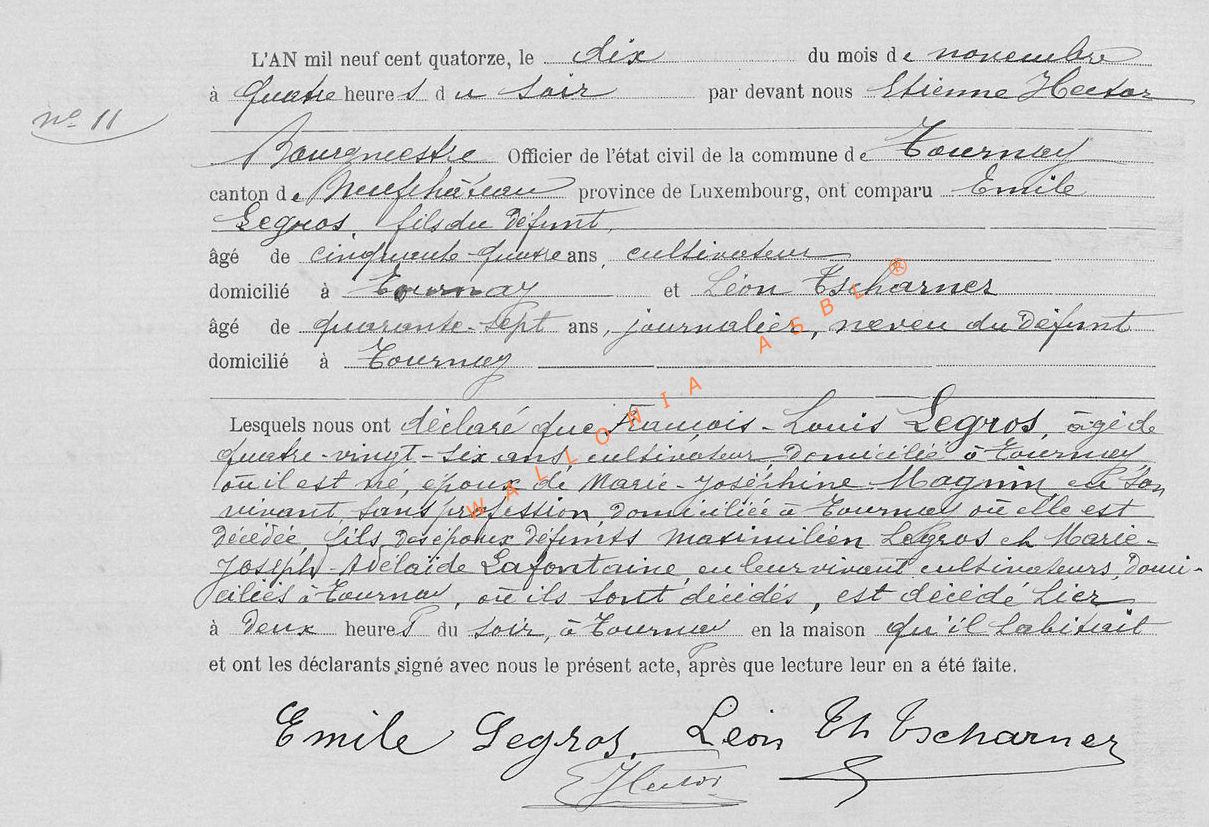 L'AN mil neuf cent quatorze, le dix du mois de novembre
à quatre heures du soir par devant nous Etienne Hector
nº 11
Bourgmestre Officier de l'état civil de la commune de Tournay
canton de Neufchâteau province de Luxembourg, ont comparu Emile
Legros, fils du défunt,
âgé de cinquante-quatre ans, cultivateur
domicilié à Tournay et Léon Tscharner
âgé de quarante-sept ans, journalier, neveu du défunt
domicilié à Tournay
Lesquels nous ont déclaré que François-Louis Legros, âgé de
quatre-vingt-six ans, cultivateur, domicilié à Tournay
où il est né, époux de Marie-Joséphine Magnin, en son
vivant, sans profession, domiciliée à Tournay où elle est
décédée, fils des époux défunts Maximilien Legros et Marie-
Joseph-Adelaïde Lafontaine, en leur vivant cultivateurs, domi-
ciliés à Tournay, où ils sont décédés, est décédé hier
à deux heures du soir, à Tournay en la maison qu'il habitait
et ont les déclarants signé avec nous le présent acte, après que lecture leur en a été faite.
Emile Legros. Léon Th Tscharner
E Hector
WALLONIA ASBL ®